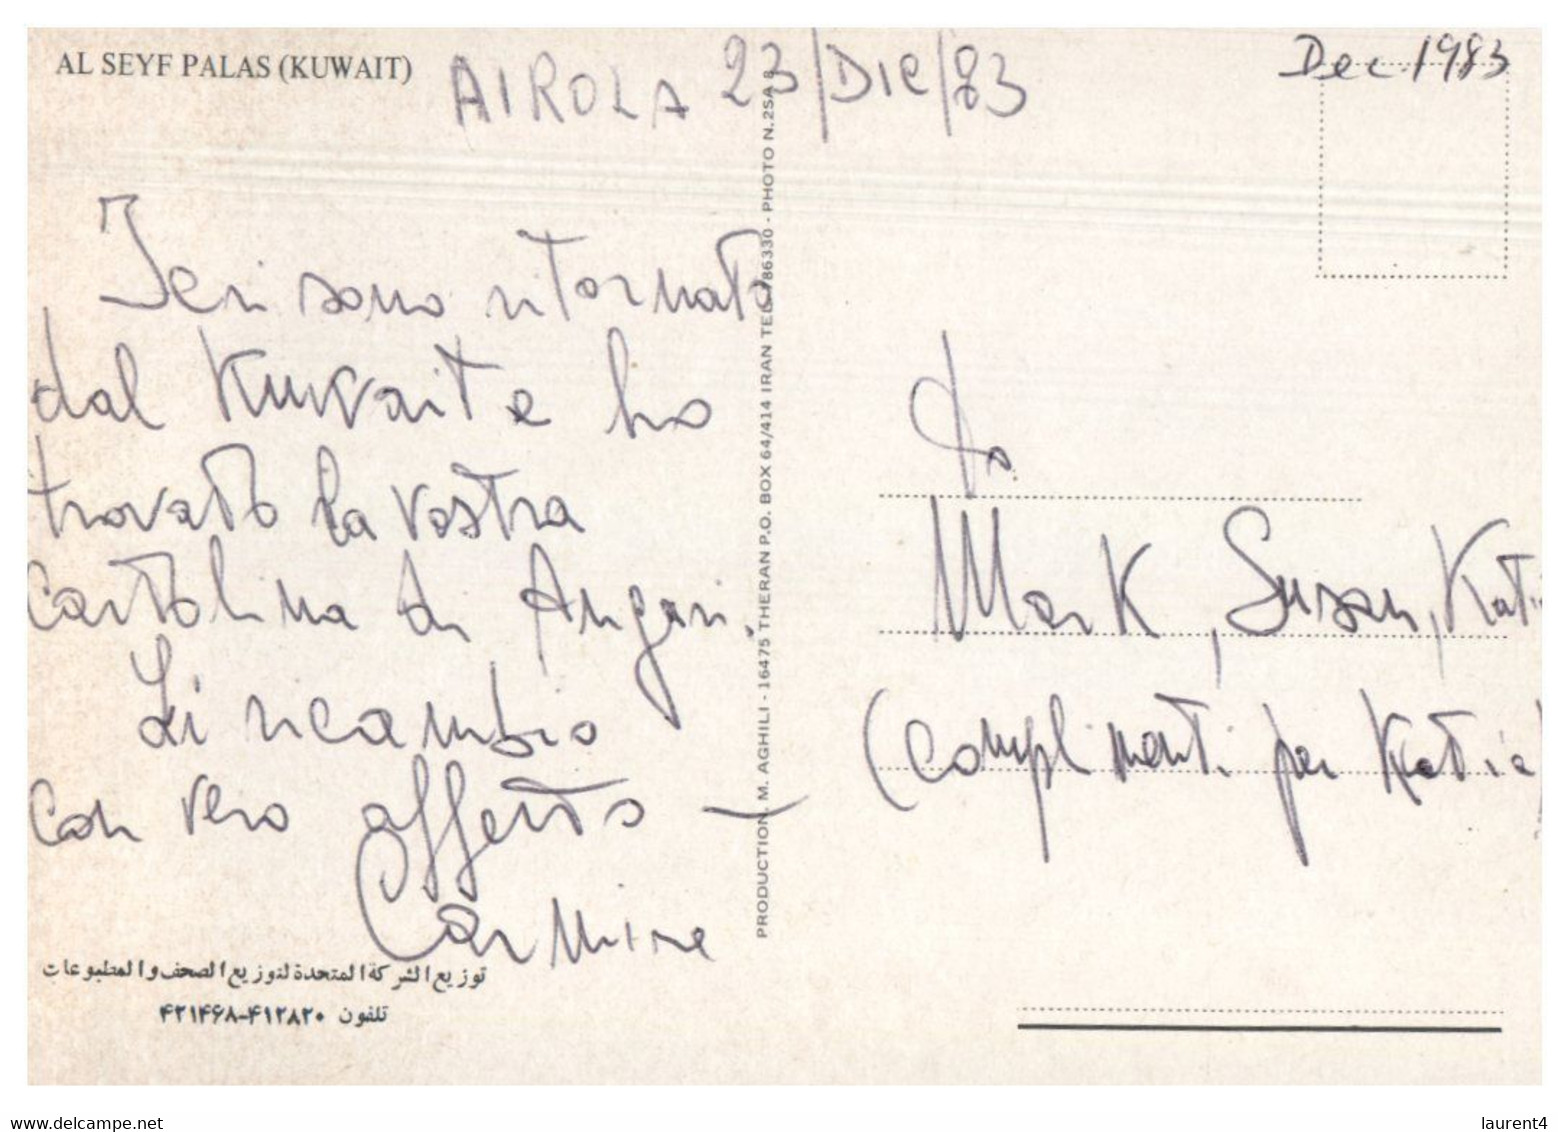 AL SEYF PALAS (KUWAIT)
AIROLA 23/DIC/83
Dec. 1983
Ieri sono ritornato
dal Kuwait e ho
trovato la vostra
cartolina di
Li ricambio
con vero affetto —
Carmine
PRODUCTION. M. AGHILI - 16475 THERAN P.O. BOX 64/414 IRAN TEL. 786330 - PHOTO N.2SA 8
To
Mark, Susan,
(complimenti per Katia)
توزيع الشركة المتحدة لتوزيع الصحف والمطبوعات
تلفون ۴۱۲۸۲۰-۴۲۱۴۶۸
www.delcampe.net
laurent4